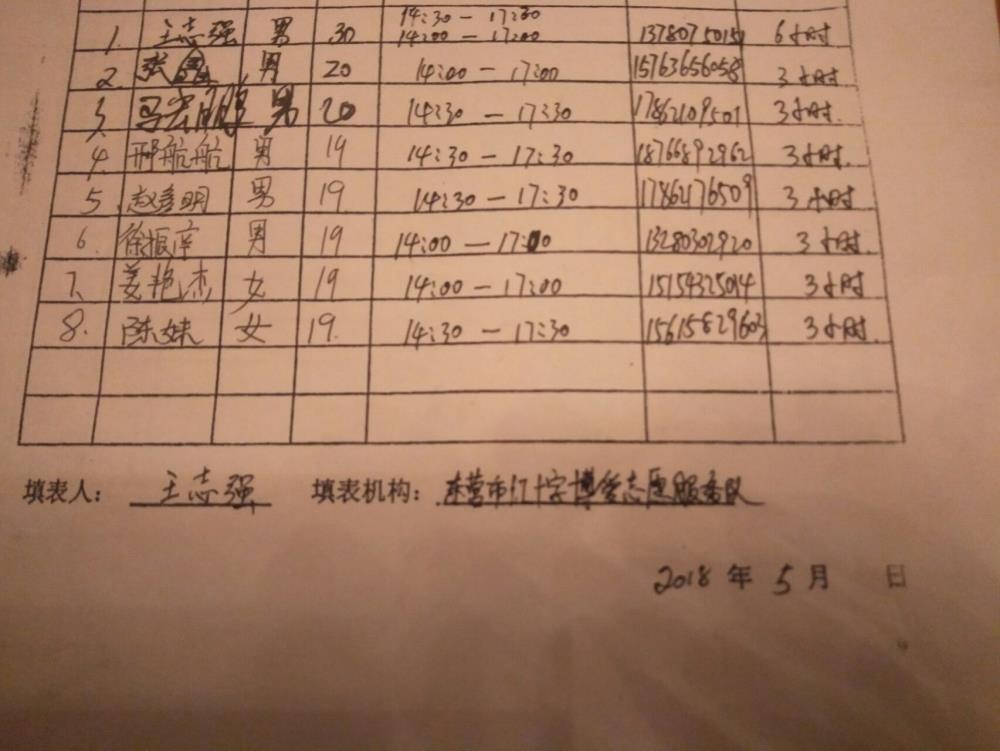 14:30 — 17:30
1. 王志强 男 30 14:00 — 17:00 13780750151 6小时
2. 张 男 20 14:00 — 17:00 15763656058 3小时
3. 马宏顺 男 20 14:30 — 17:30 17862109501 3小时.
4. 邢航航 男 19 14:30 — 17:30 18766892962 3小时.
5. 赵彦明 男 19 14:30 — 17:30 17862176509 3小时
6. 徐振 男 19 14:00 — 17:00 13280302920 3小时.
7. 姜艳杰 女 19 14:00 — 17:00 15154325014 3小时
8. 陈妹 女 19. 14:30 — 17:30 15615829603 3小时.
填表人: 王志强 填表机构: 东营市红十字博爱志愿服务队
2018 年 5 月 日